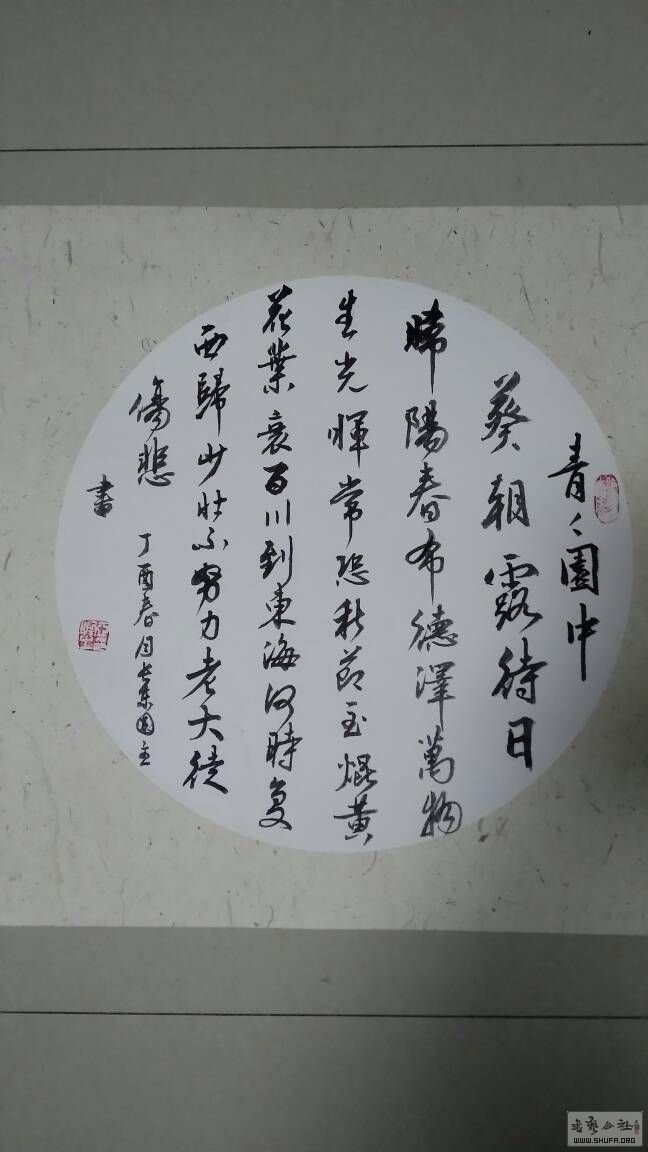 青々園中
葵朝露待日
晞陽春布德澤萬物
生光暉常恐秋節至焜黃
花葉衰百川到東海何時復
西歸少壯不努力老大徒
傷悲
丁酉春月長樂園主
書
WWW.SHUFA.ORG